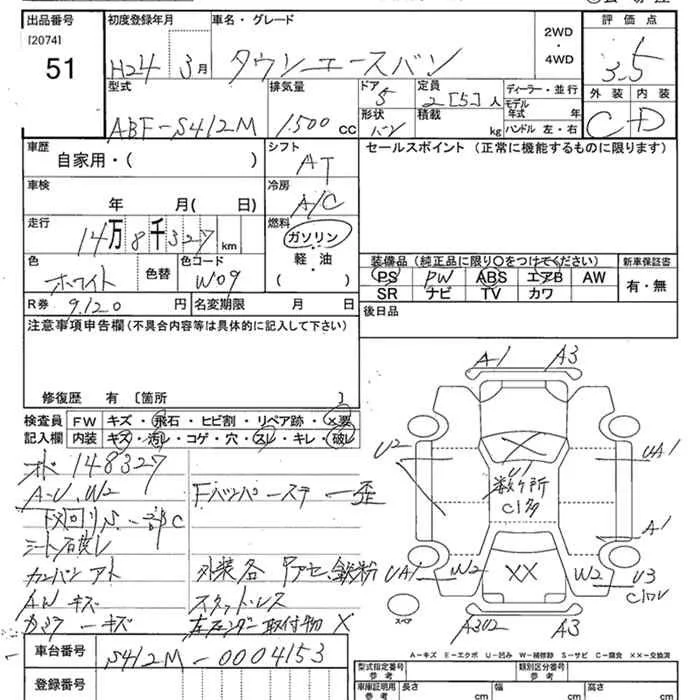 出品番号 初度登録年月 車名・グレード 2WD・4WD 評価点
[2074]
51 H24 3月 タウンエースバン 3.5
型式 排気量 ドア 定員 ディーラー・並行 外装 内装
5 2[5]人 モデル年式 年
ABF-S412M 1.500cc 形状 バン 積載 kg ハンドル 左・右 C D
車歴 シフト セールスポイント (正常に機能するものに限ります)
自家用・( ) AT
車検 冷房
年 月( 日) A/C
走行 燃料
14万8千327km ガソリン
軽・油
( )
色 色替 色コード 装備品 (純正品に限り〇をつけてください) 新車保証書
ホワイト W09 PS PW ABS エアB AW 有・無
SR ナビ TV カワ
R券 9.120円 名変期限 月 日 後日品
注意事項申告欄 (不具合内容等は具体的に記入して下さい)
修復歴 有 [箇所
検査員 FW キズ・飛石・ヒビ割・リペア跡・×要
記入欄 内装 キズ・汚レ・コゲ・穴・スレ・キレ・破レ
148327
A-U.W2 Fバンパーステー歪
シート破レ
カンバンアト 外装各 鉄粉
AWキズ スタットレス
キズ 取付物 X
A1 A3
U2 UA1
X
U1
数ヶ所
C1多
A1
UA1 W2 XX W2 U3
スペア
A3U2 A3
A-キズ E-エクボ U-凹み W-補修跡 S-サビ C-腐食 XX-交換済
車台番号 S412M-0004153
登録番号
型式指定番号 参考 類別区分番号 参考
車庫証明用 参考 長さ cm 幅 cm 高さ cm